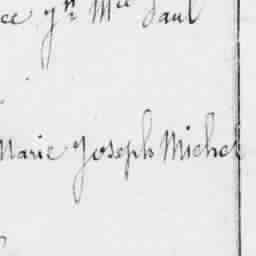 ce yn Mce Paul
Marie Joseph Michel